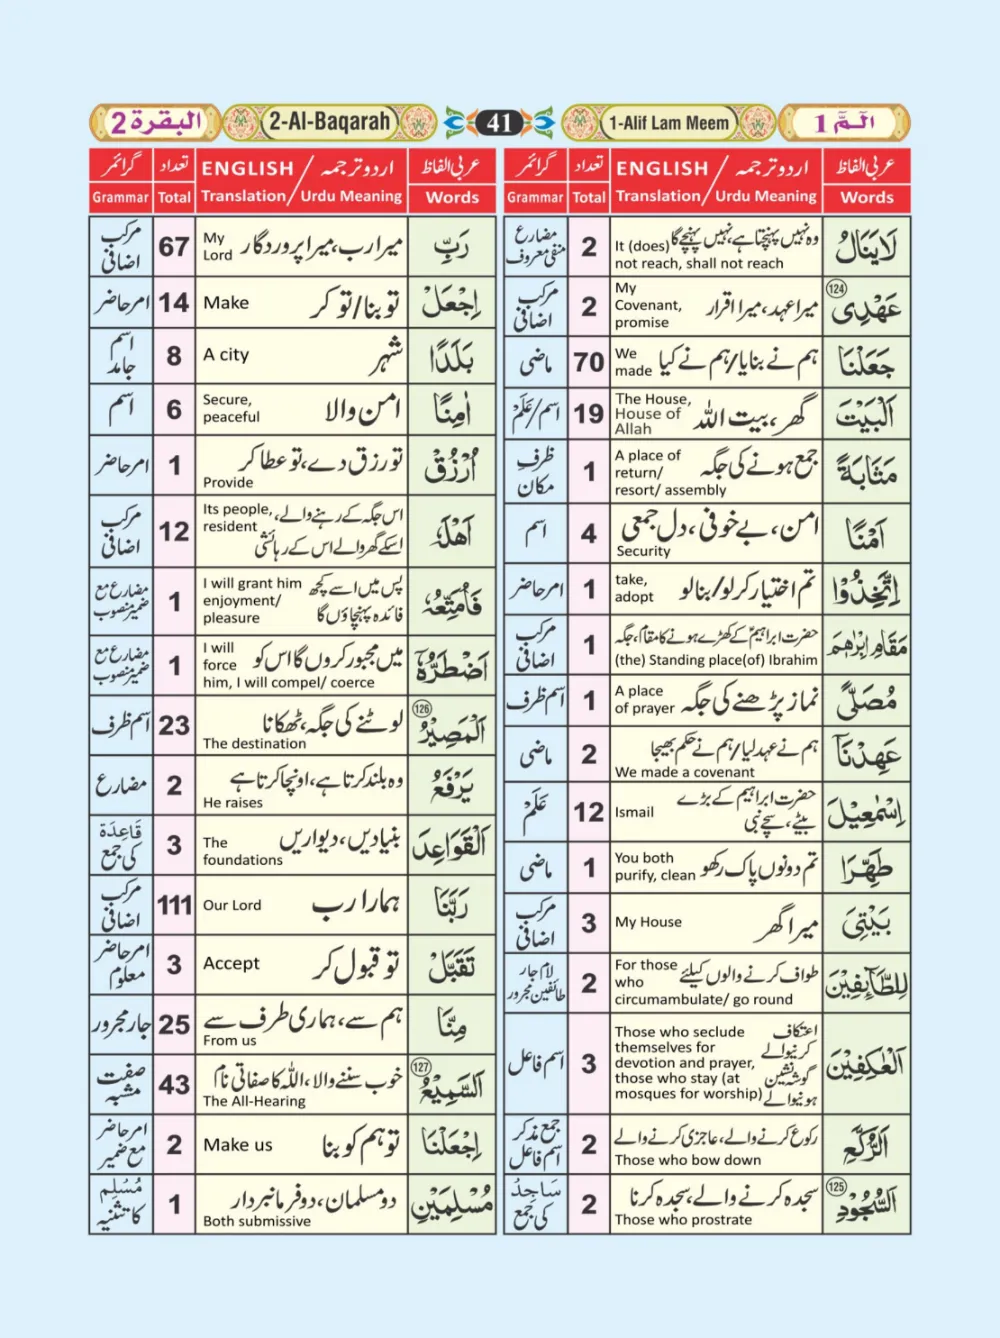 البقرة 2
2-Al-Baqarah
41
1-Alif Lam Meem
الٓمّٓ 1
عربی الفاظ
اردو ترجمہ / ENGLISH
تعداد
گرائمر
Words
Translation/ Urdu Meaning
Total
Grammar
لَا يَنَالُ
وہ نہیں پہنچتا ہے، نہیں پہنچے گا
It (does) not reach, shall not reach
2
مضارع منفی معروف
عَهْدِی 124
میرا عہد، میرا اقرار
My Covenant, promise
2
مرکب اضافی
جَعَلْنَا
ہم نے بنایا/ہم نے کیا
We made
70
ماضی
اَلْبَيْتَ
گھر، بیت اللہ
The House, House of Allah
19
اسم/عَلَم
مَثَابَةً
جمع ہونے کی جگہ
A place of return/ resort/ assembly
1
ظرفِ مکان
اَمْنًا
امن، بے خوفی، دل جمعی
Security
4
اسم
اِتَّخِذُوْا
تم اختیار کرلو/بنالو
take, adopt
1
امر حاضر
مَقَامِ اِبْرٰهٖمَ
حضرت ابراہیمؑ کے کھڑے ہونے کا مقام، جگہ
(the) Standing place(of) Ibrahim
1
مرکب اضافی
مُصَلًّى
نماز پڑھنے کی جگہ
A place of prayer
1
اسم ظرف
عَهِدْنَآ
ہم نے عہد لیا/ہم نے حکم بھیجا
We made a covenant
2
ماضی
اِسْمٰعِيْلَ
حضرت ابراہیم کے بڑے بیٹے، سچے نبی
Ismail
12
عَلَم
طَهِّرَا
تم دونوں پاک رکھو
You both purify, clean
1
ماضی
بَيْتِیَ
میرا گھر
My House
3
مرکب اضافی
لِلطَّآئِفِيْنَ
طواف کرنے والوں کیلئے
For those who circumambulate/ go round
2
لام جار طائفین مجرور
اَلْعٰكِفِيْنَ
اعتکاف کرنیوالے گوشہ نشین ہونیوالے
Those who seclude themselves for devotion and prayer, those who stay (at mosques for worship)
3
اسم فاعل
اَلرُّكَّعِ
رکوع کرنے والے، عاجزی کرنے والے
Those who bow down
2
جمع مذکر اسم فاعل
اَلسُّجُوْدِ 125
سجدہ کرنے والے، سجدہ کرنا
Those who prostrate
2
سَاجِدٌ کی جمع
عربی الفاظ
اردو ترجمہ / ENGLISH
تعداد
گرائمر
Words
Translation/ Urdu Meaning
Total
Grammar
رَبِّ
میرا رب، میرا پروردگار
My Lord
67
مرکب اضافی
اِجْعَلْ
تو بنا/تو کر
Make
14
امر حاضر
بَلَدًا
شہر
A city
8
اسم جامد
اٰمِنًا
امن والا
Secure, peaceful
6
اسم
اُرْزُقْ
تو رزق دے، تو عطا کر
Provide
1
امر حاضر
اَهْلَهٗ
اس جگہ کے رہنے والے، اسکے گھر والے اس کے رہائشی
Its people, resident
12
مرکب اضافی
فَاُمَتِّعُهٗ
پس میں اسے کچھ فائدہ پہنچاؤں گا
I will grant him enjoyment/ pleasure
1
مضارع مع ضمیر منصوب
اَضْطَرُّهٗٓ
میں مجبور کروں گا اس کو
I will force him, I will compel/ coerce
1
مضارع مع ضمیر منصوب
اَلْمَصِيْرُ 126
لوٹنے کی جگہ، ٹھکانا
The destination
23
اسم ظرف
يَرْفَعُ
وہ بلند کرتا ہے، اونچا کرتا ہے
He raises
2
مضارع
اَلْقَوَاعِدَ
بنیادیں، دیواریں
The foundations
3
قَاعِدَة کی جمع
رَبَّنَا
ہمارا رب
Our Lord
111
مرکب اضافی
تَقَبَّلْ
تو قبول کر
Accept
3
امر حاضر معلوم
مِنَّا
ہم سے، ہماری طرف سے
From us
25
جار مجرور
اَلسَّمِيْعُ 127
خوب سننے والا، اللہ کا صفاتی نام
The All-Hearing
43
صفت مشبہ
اِجْعَلْنَا
تو ہم کو بنا
Make us
2
امر حاضر مع ضمیر
مُسْلِمَيْنِ
دو مسلمان، دو فرمانبردار
Both submissive
1
مُسْلِم کا تثنیہ